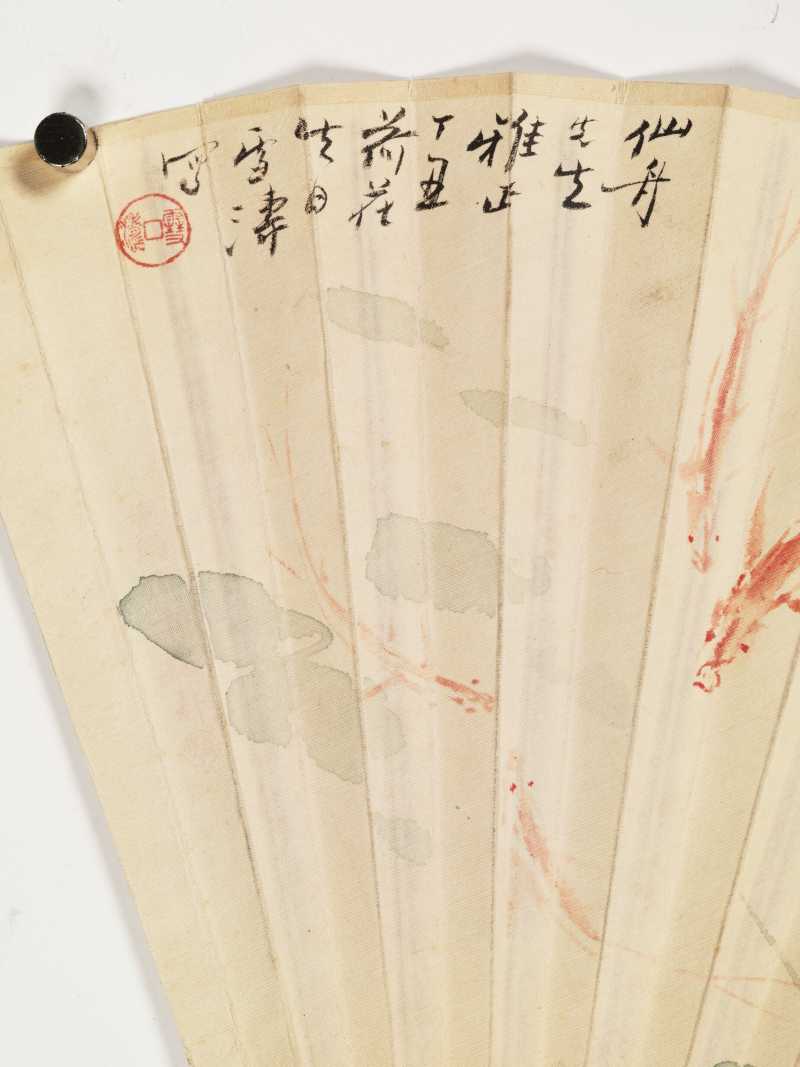 仙舟
先生
雅正
丁丑
荷花
生日
雪濤
写